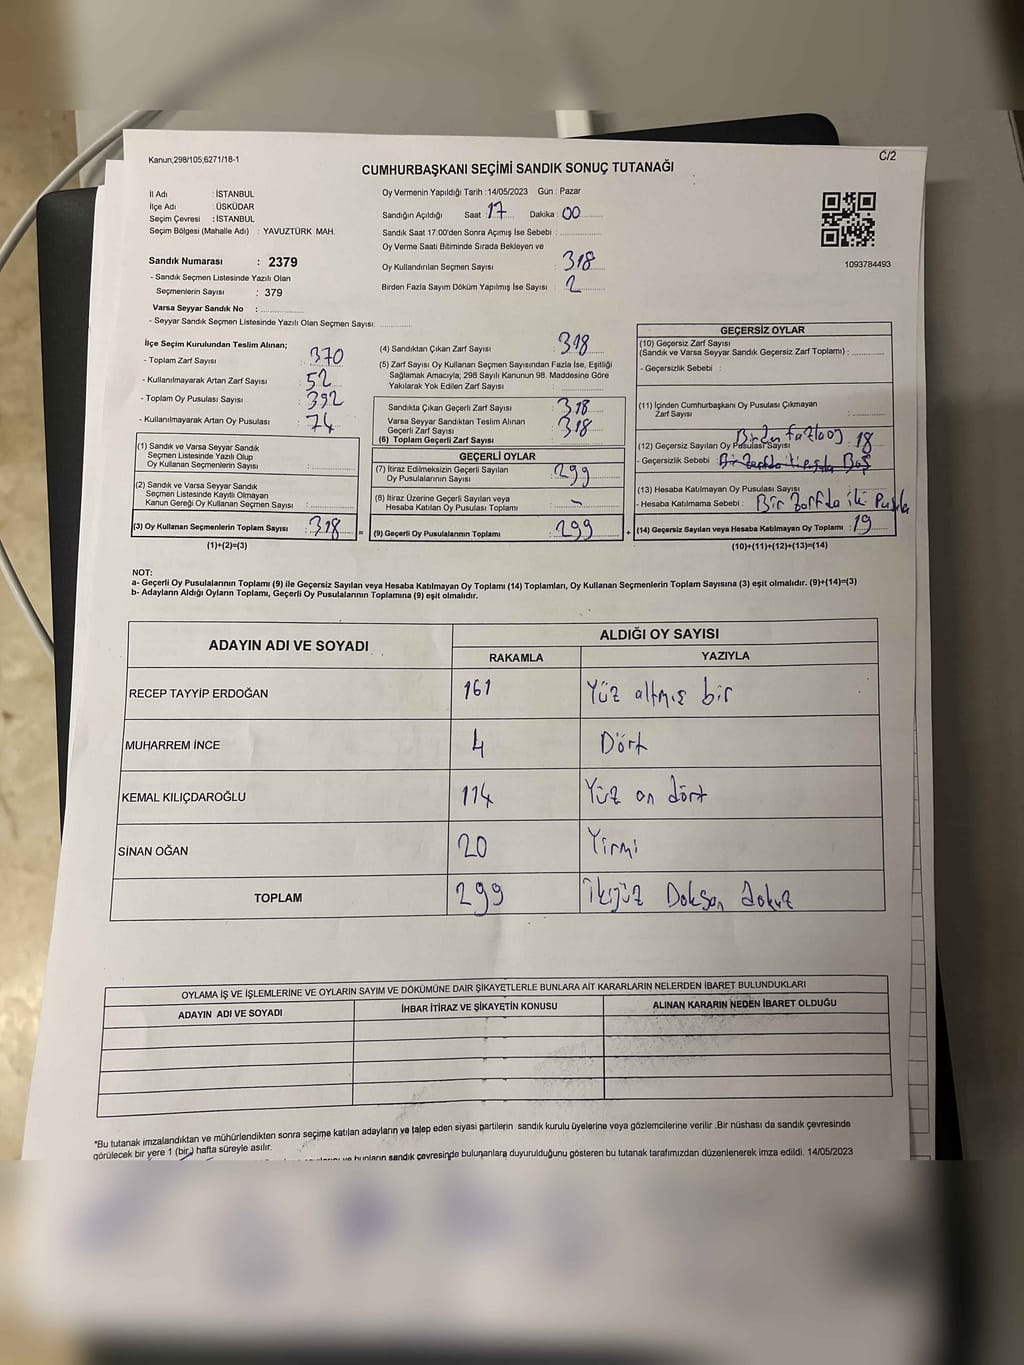 Kanun,298/105,6271/18-1
Ç/2
CUMHURBAŞKANI SEÇİMİ SANDIK SONUÇ TUTANAĞI
İl Adı : İSTANBUL
İlçe Adı : ÜSKÜDAR
Seçim Çevresi : İSTANBUL
Seçim Bölgesi (Mahalle Adı) : YAVUZTÜRK MAH.
Sandık Numarası : 2379
- Sandık Seçmen Listesinde Yazılı Olan
Seçmenlerin Sayısı : 379
Varsa Seyyar Sandık No :
- Seyyar Sandık Seçmen Listesinde Yazılı Olan Seçmen Sayısı:
Oy Vermenin Yapıldığı Tarih :14/05/2023 Gün : Pazar
Sandığın Açıldığı Saat : 17 Dakika : 00
Sandık Saat 17:00'den Sonra Açımış İse Sebebi :
Oy Verme Saati Bitiminde Sırada Bekleyen ve
Oy Kullandırılan Seçmen Sayısı : 318
Birden Fazla Sayım Döküm Yapılmış İse Sayısı : 2
1093784493
İlçe Seçim Kurulundan Teslim Alınan;
- Toplam Zarf Sayısı : 370
- Kullanılmayarak Artan Zarf Sayısı : 52
- Toplam Oy Pusulası Sayısı : 392
- Kullanılmayarak Artan Oy Pusulası : 74
(1) Sandık ve Varsa Seyyar Sandık
Seçmen Listesinde Yazılı Olup
Oy Kullanan Seçmenlerin Sayısı :
(2) Sandık ve Varsa Seyyar Sandık
Seçmen Listesinde Kayıtlı Olmayan
Kanun Gereği Oy Kullanan Seçmen Sayısı :
(3) Oy Kullanan Seçmenlerin Toplam Sayısı : 318
(1)+(2)=(3)
(4) Sandıktan Çıkan Zarf Sayısı : 318
(5) Zarf Sayısı Oy Kullanan Seçmen Sayısından Fazla İse, Eşitliği
Sağlamak Amacıyla; 298 Sayılı Kanunun 98. Maddesine Göre
Yakılarak Yok Edilen Zarf Sayısı :
Sandıkta Çıkan Geçerli Zarf Sayısı : 318
Varsa Seyyar Sandıktan Teslim Alınan
Geçerli Zarf Sayısı : 318
(6) Toplam Geçerli Zarf Sayısı
GEÇERLİ OYLAR
(7) İtiraz Edilmeksizin Geçerli Sayılan
Oy Pusulalarının Sayısı : 299
(8) İtiraz Üzerine Geçerli Sayılan veya
Hesaba Katılan Oy Pusulası Toplamı : -
(9) Geçerli Oy Pusulalarının Toplamı : 299
GEÇERSİZ OYLAR
(10) Geçersiz Zarf Sayısı
(Sandık ve Varsa Seyyar Sandık Geçersiz Zarf Toplamı) :
- Geçersizlik Sebebi :
(11) İçinden Cumhurbaşkanı Oy Pusulası Çıkmayan
Zarf Sayısı :
Birden fazla oy
(12) Geçersiz Sayılan Oy Pusulası Sayısı : 18
- Geçersizlik Sebebi : Boş
(13) Hesaba Katılmayan Oy Pusulası Sayısı :
- Hesaba Katılmama Sebebi : Bir Zarfda iki Pusula
(14) Geçersiz Sayılan veya Hesaba Katılmayan Oy Toplamı : 19
(10)+(11)+(12)+(13)=(14)
NOT:
a- Geçerli Oy Pusulalarının Toplamı (9) ile Geçersiz Sayılan veya Hesaba Katılmayan Oy Toplamı (14) Toplamları, Oy Kullanan Seçmenlerin Toplam Sayısına (3) eşit olmalıdır. (9)+(14)=(3)
b- Adayların Aldığı Oyların Toplamı, Geçerli Oy Pusulalarının Toplamına (9) eşit olmalıdır.
ADAYIN ADI VE SOYADI
ALDIĞI OY SAYISI
RAKAMLA YAZIYLA
RECEP TAYYİP ERDOĞAN 161 Yüz altmış bir
MUHARREM İNCE 4 Dört
KEMAL KILIÇDAROĞLU 114 Yüz on dört
SİNAN OĞAN 20 Yirmi
TOPLAM 299 İkiyüz Doksan dokuz
OYLAMA İŞ VE İŞLEMLERİNE VE OYLARIN SAYIM VE DÖKÜMÜNE DAİR ŞİKAYETLERLE BUNLARA AİT KARARLARIN NELERDEN İBARET BULUNDUKLARI
ADAYIN ADI VE SOYADI İHBAR İTİRAZ VE ŞİKAYETİN KONUSU ALINAN KARARIN NEDEN İBARET OLDUĞU
*Bu tutanak imzalandıktan ve mühürlendikten sonra seçime katılan adayların ve talep eden siyasi partilerin sandık kurulu üyelerine veya gözlemcilerine verilir .Bir nüshası da sandık çevresinde
görülecek bir yere 1 (bir) hafta süreyle asılır.
bunların sandık çevresinde bulunanlara duyurulduğunu gösteren bu tutanak tarafımızdan düzenlenerek imza edildi. 14/05/2023